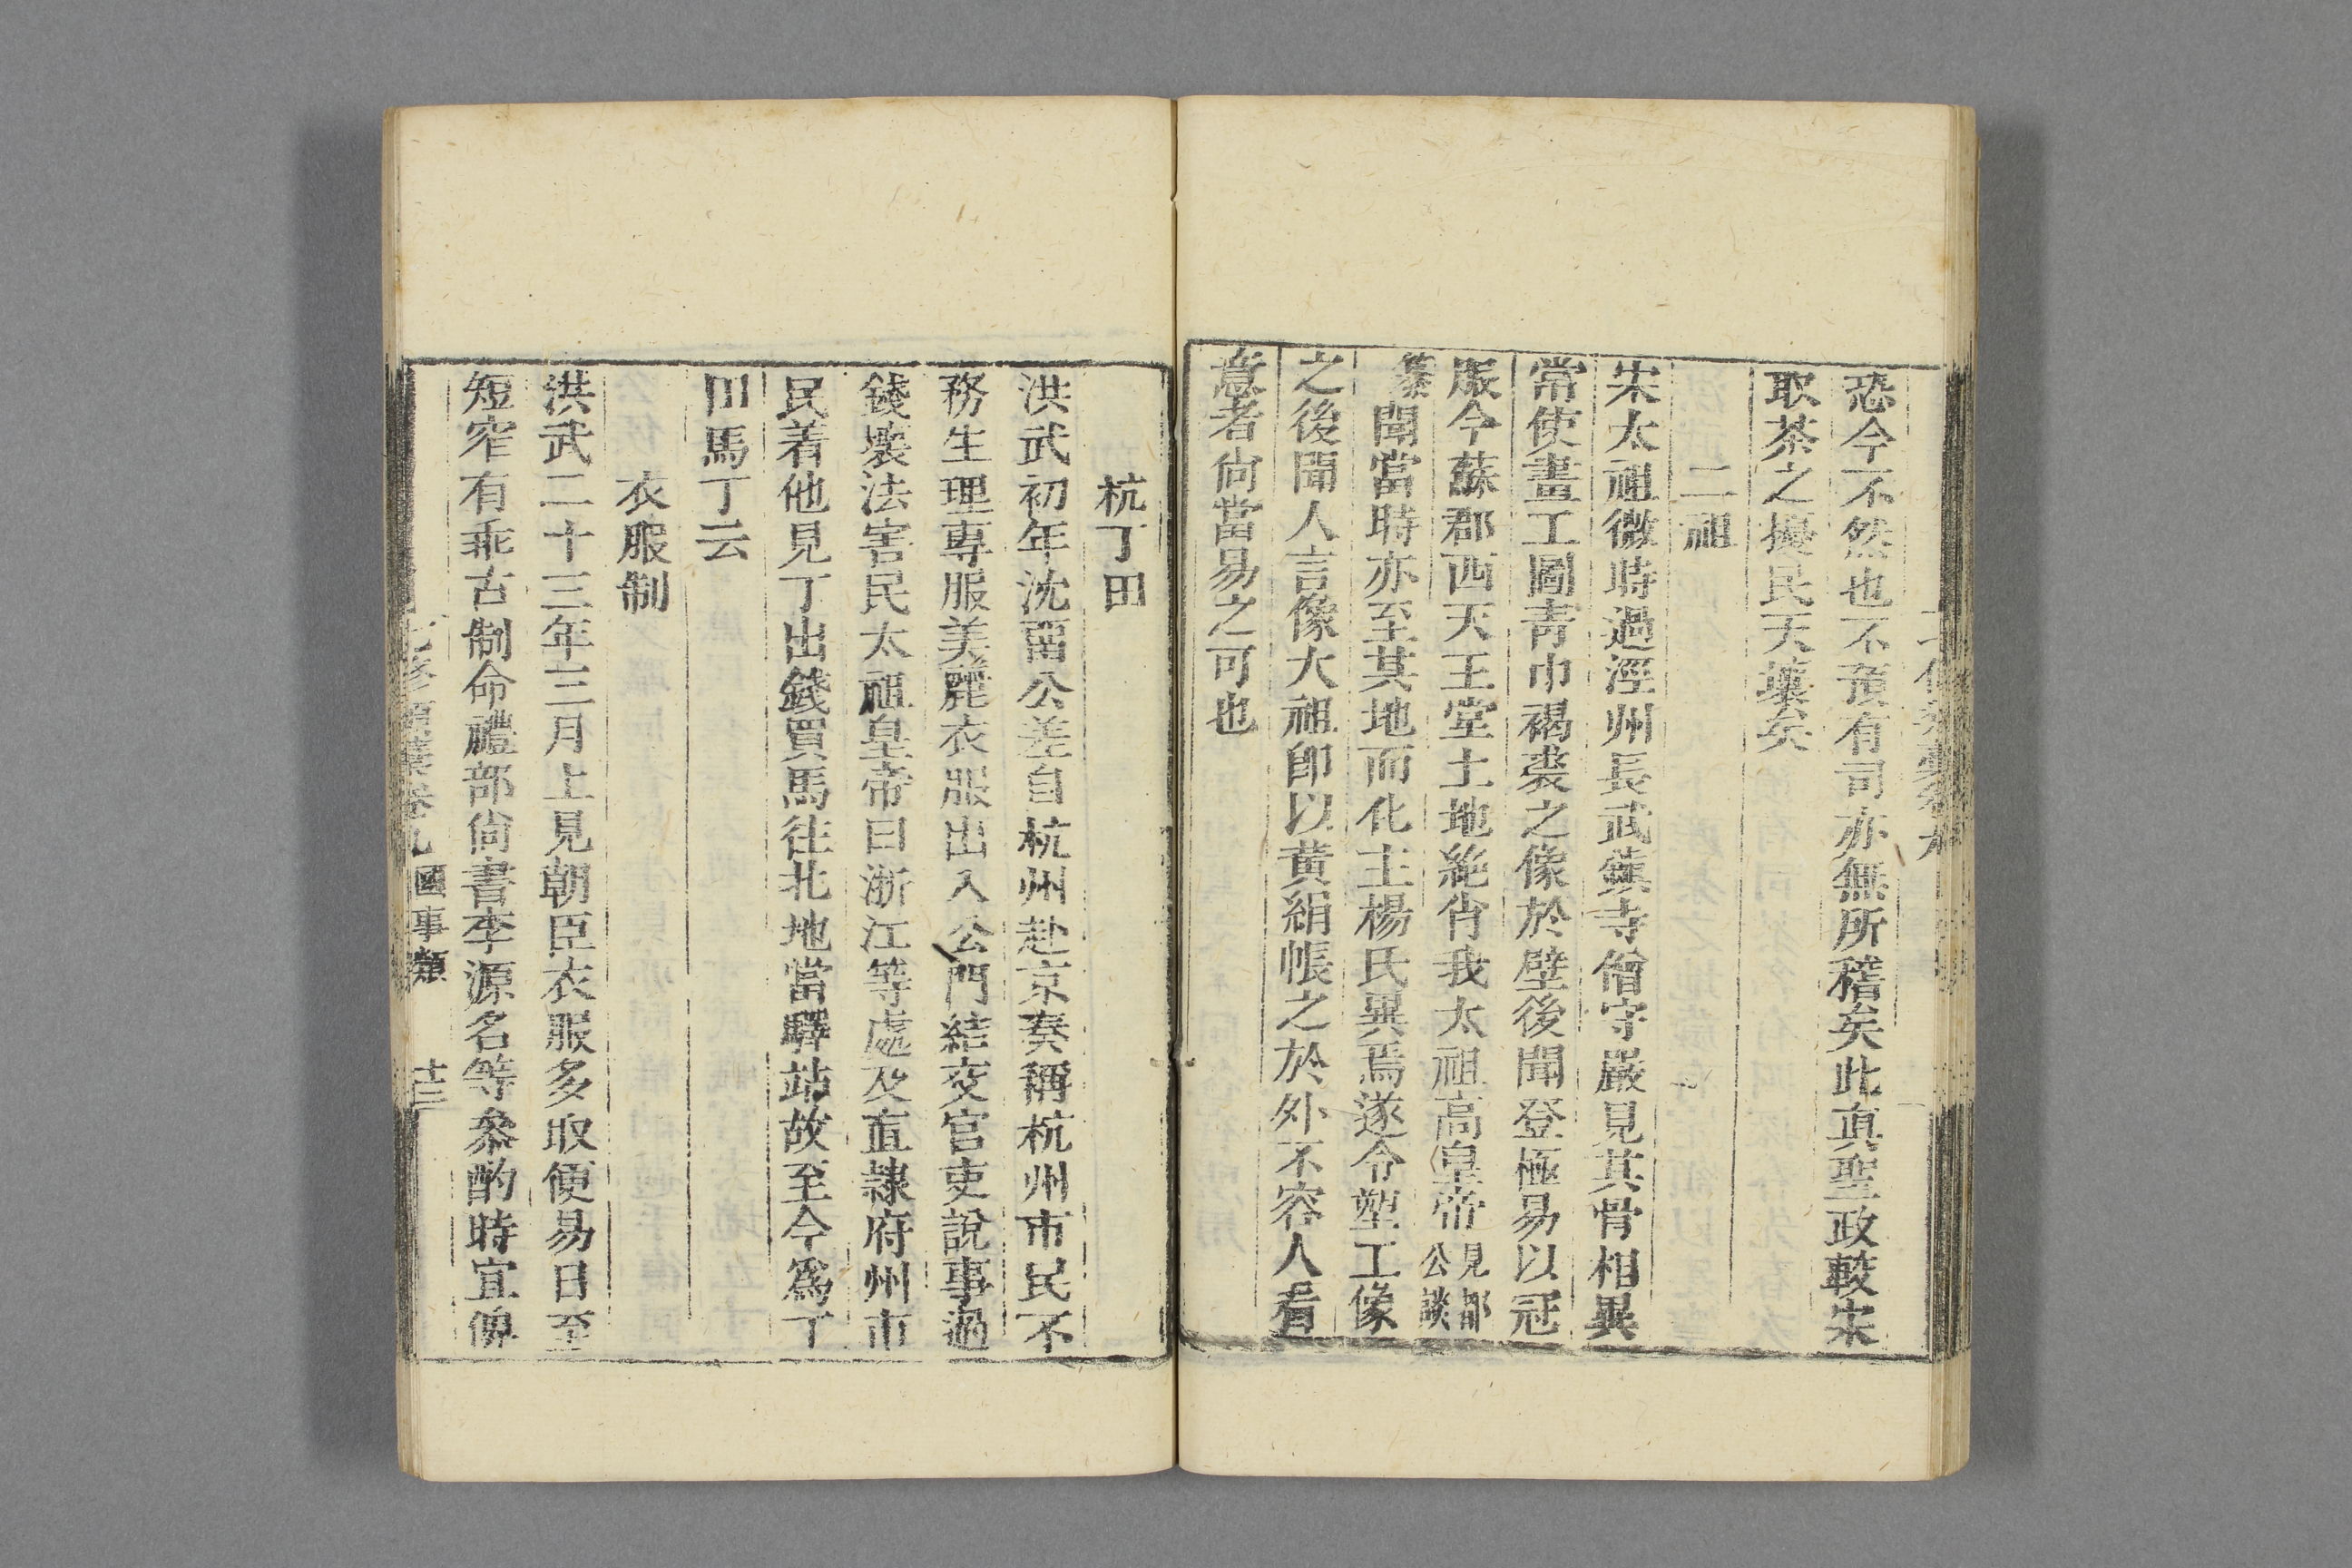 恐今不然也不預有司亦無所稽矣此真聖政較宋
取茶之擾民天壤矣
二祖
宋太祖微時過涇州長武鎮寺僧守嚴見其骨相異
常使畫工圖青巾褐裘之像於壁後聞登極易以冠
服今蘇郡西天王堂土地絶肖我太祖高皇帝見都公談
纂聞當時亦至其地而化主楊氏異焉遂令塑工像
之後聞人言像太祖即以黄絹帳之於外不容人看
意者尚當易之可也
杭丁田
洪武初年沈酉公差自杭州赴京奏稱杭州市民不
務生理專服美麗衣服出入公門結交官吏說事過
錢壊法害民太祖皇帝曰浙江等處及直隷府州市
民着他見丁出錢買馬往北地當驛站故至今爲丁
田馬丁云
衣服制
洪武二十三年三月上見朝臣衣服多取便易日至
短窄有乖古制命禮部尚書李源名等叅酌時宜俾
七修類藁卷九 國事類 十三